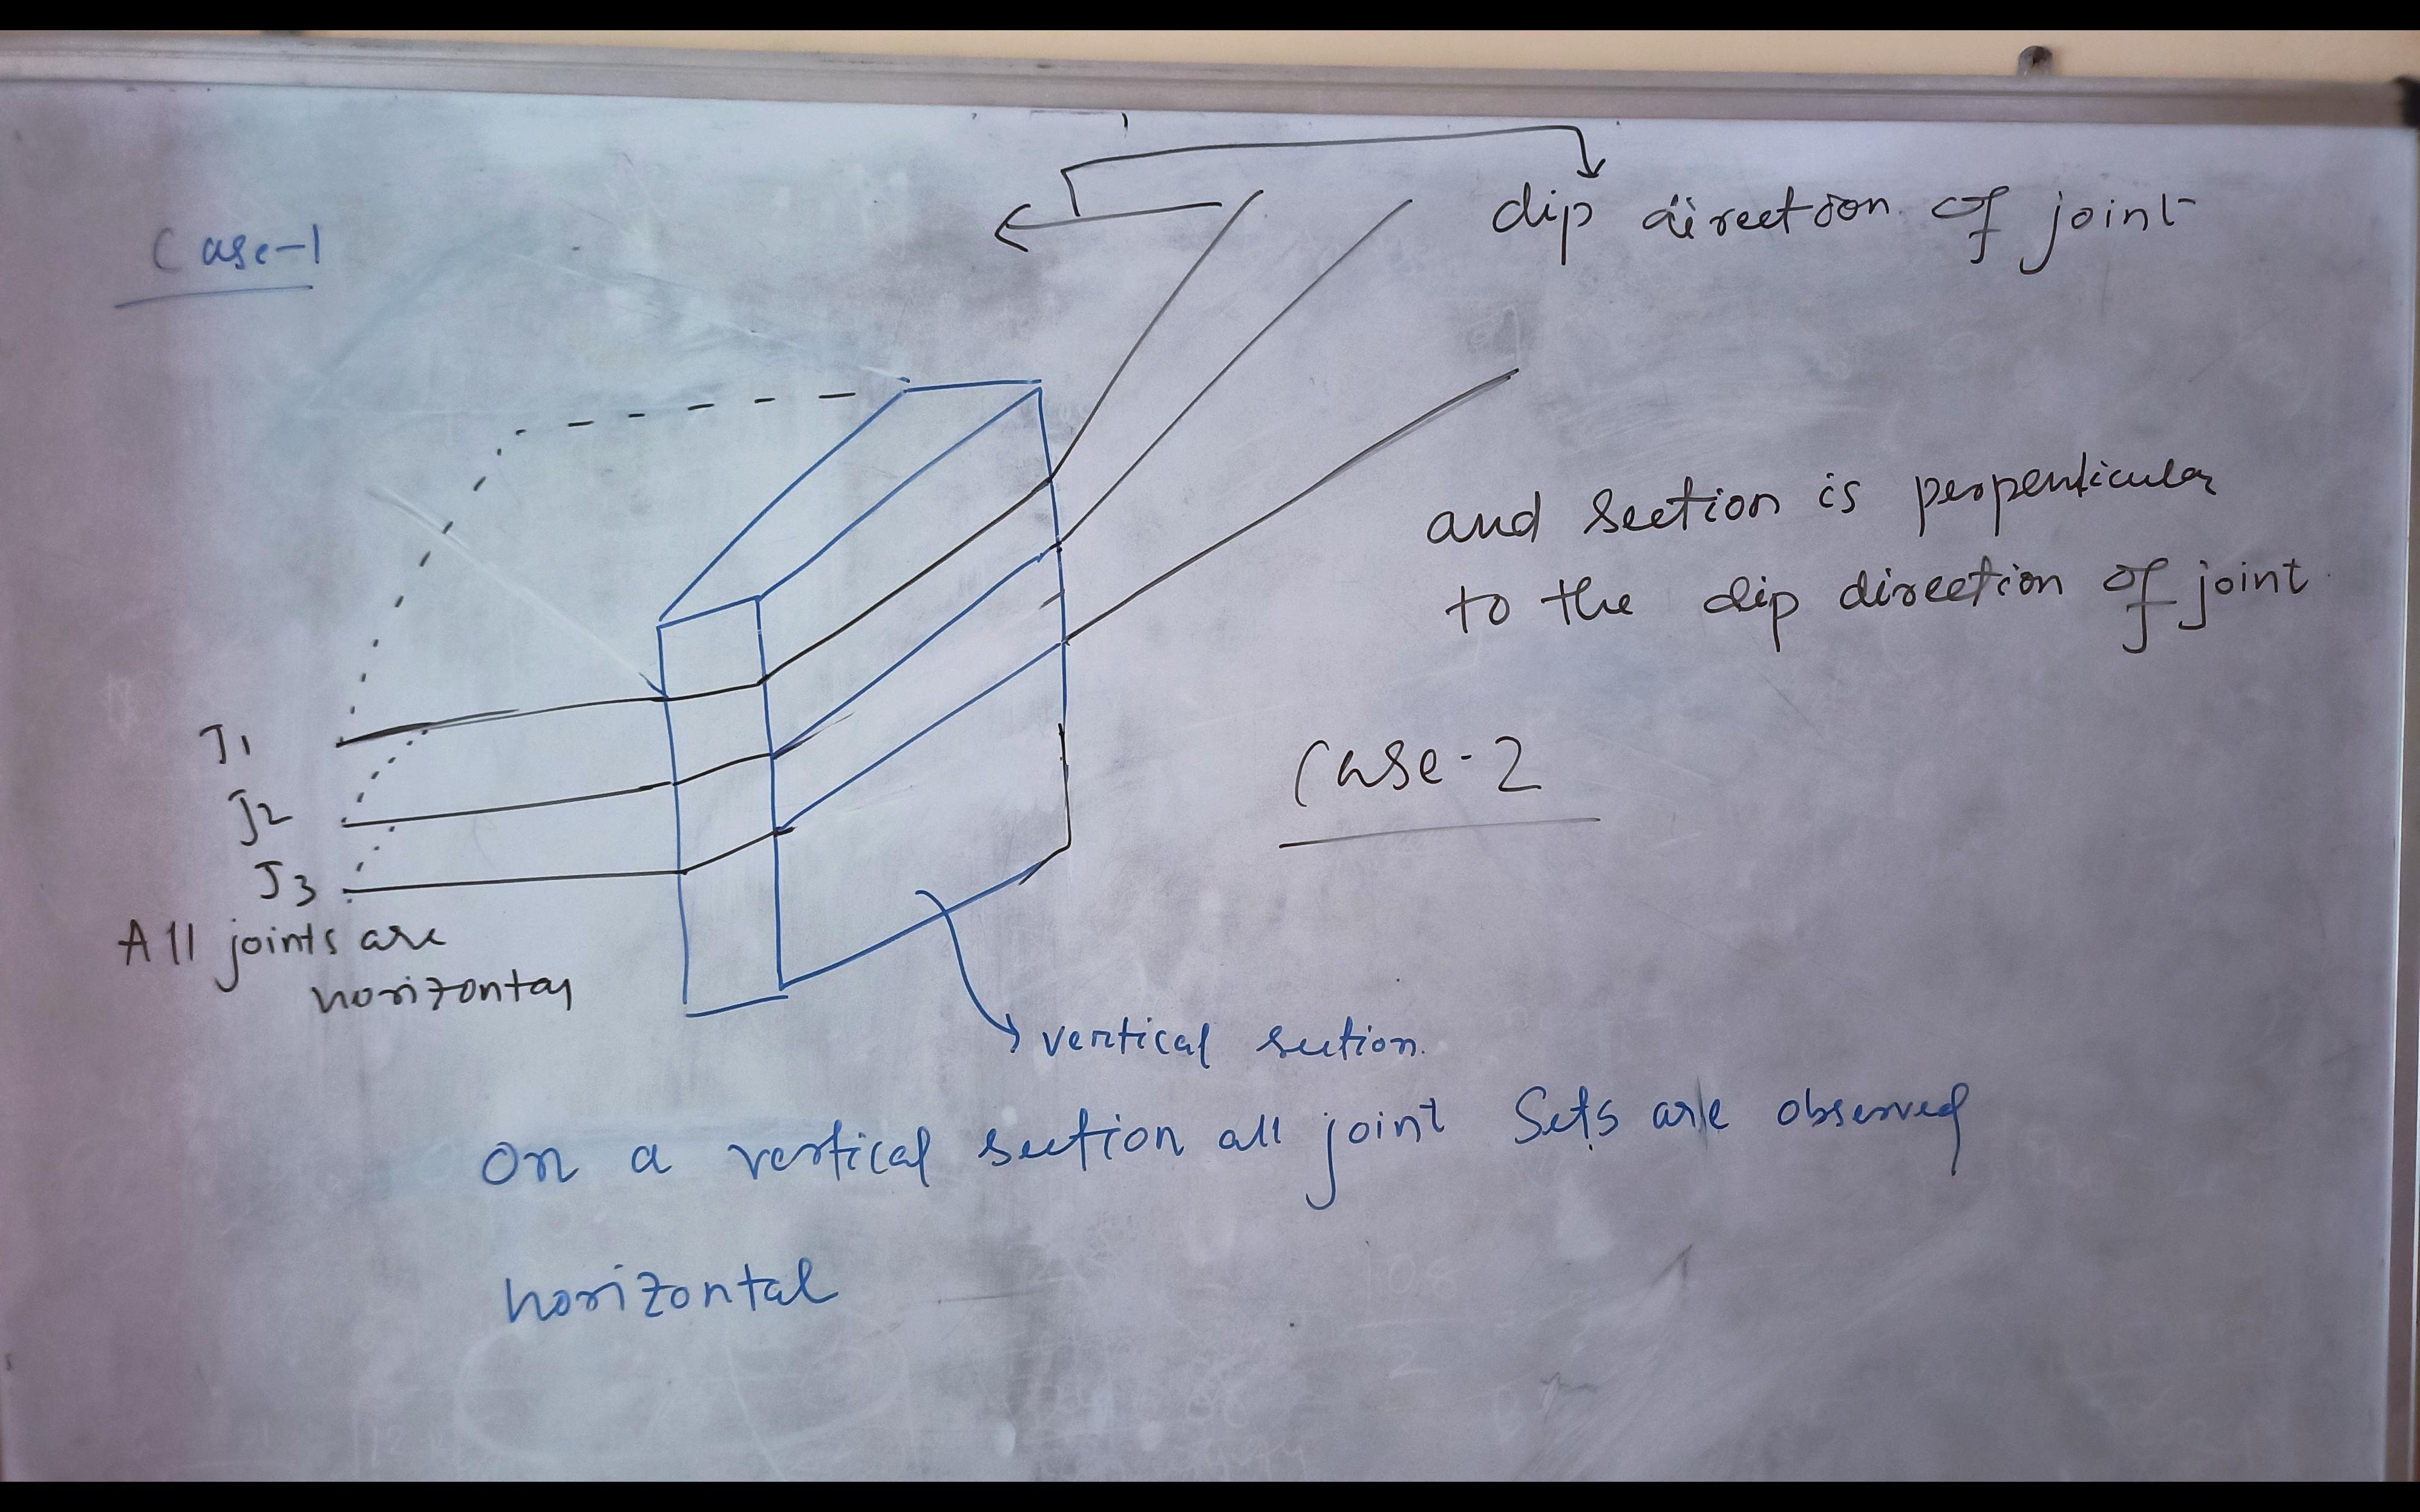 Case-1
dip direction of joint
and section is perpenticular
to the dip direction of joint
Case-2
J1
J2
J3
All joints are
horizontal
vertical section.
On a vertical section all joint Sets are observed
horizontal